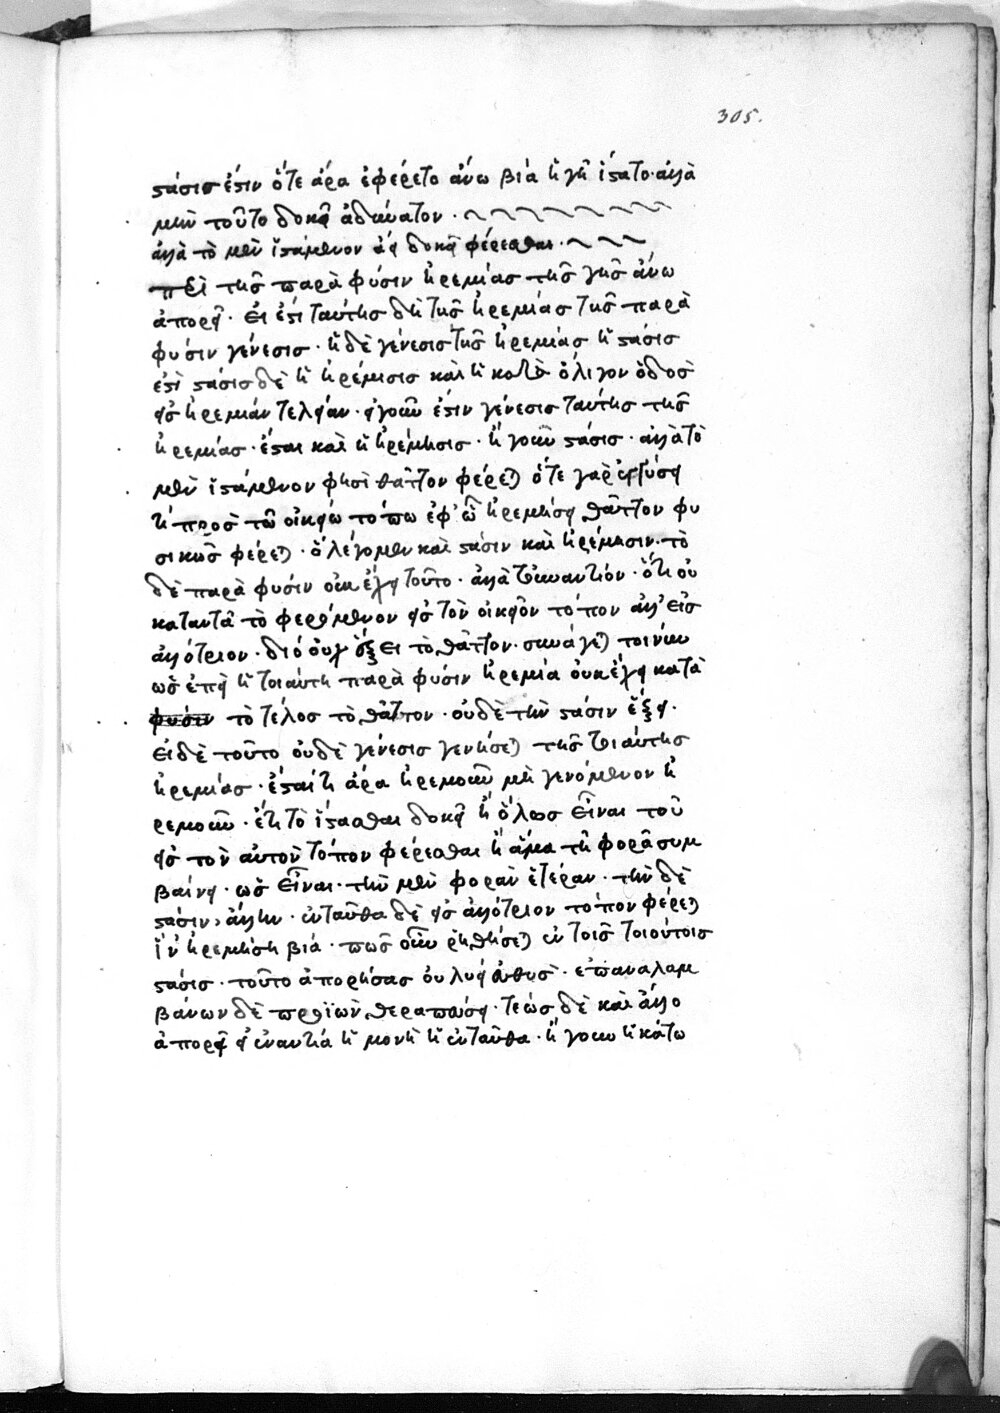 305.
στάσις ἐστιν ὅτε ἄρα ἐφέρετο ἄνω βία ἡ γῆ ἵστατο· ἀλλὰ
μὴν τοῦτο δοκεῖ ἀδύνατον ·
ἀλλὰ τὸ μὲν ἱστάμενον ἀεὶ δοκεῖ φέρεσθαι ·
Ἐπὶ τῆς παρὰ φύσιν ἠρεμίας τῆς γῆς ἄνω
ἀπορεῖ · εἰ ἔστι ταύτης δὴ τῆς ἠρεμίας τῆς παρὰ
φύσιν γένεσις · ἡ δὲ γένεσις τῆς ἠρεμίας ἡ στάσις
ἐστὶ στάσις δὲ ἡ ἠρέμισις καὶ ἡ κατὰ ὀλίγον ὁδὸς
εἰς ἠρεμίαν τελείαν · εἰ γοῦν ἔστιν γένεσις ταύτης τῆς
ἠρεμίας · ἔσται καὶ ἡ ἠρέμησις · ἤγουν στάσις · ἀλλὰ τὸ
μὲν ἱστάμενον φησὶ θᾶττον φέρεται ὅτε γὰρ ἐγγύσει
ἡ πρὸς τῶ οἰκείω τόπω ἐφ' ὧ ἠρεμήσει θᾶττον φυ
σικῶς φέρεται · ὃ λέγομεν καὶ στάσιν καὶ ἠρέμησιν· τὸ
δὲ παρὰ φύσιν οὐκ ἔχει τοῦτο · ἀλλὰ τοὐναντίον · ὅτι οὐ
καταντᾶ τὸ φερόμενον εἰς τὸν οἰκεῖον τόπον ἀλλ' εἰς
ἀλλότριον · διὸ οὐχ ἕξει τὸ θᾶττον · συνάγεται τοίνυν
ὡς ἐπεὶ ἡ τοιαύτη παρὰ φύσιν ἠρεμία οὐκ ἔχει κατὰ
φύσιν τὸ τέλος τὸ θᾶττον · οὐδὲ τὴν στάσιν ἕξει ·
εἰ δὲ τοῦτο οὐδὲ γένεσις γενήσεται τῆς τοιαύτης
ἠρεμίας · ἔσται τι ἄρα ἠρεμοῦν μὴ γενόμενον ἠ
ρεμοῦν · ἔτι τὸ ἵστασθαι δοκεῖ ἢ ὅλως εἶναι τοῦ
εἰς τὸν αὐτοῦ τόπον φέρεσθαι ἢ ἅμα τῆ φορᾶ συμ
βαίνει · ὡς εἶναι · τὴν μὲν φορὰν ἑτέραν · τὴν δὲ
στάσιν, ἄλλην · ἐνταῦθα δὲ εἰς ἀλλότριον τόπον φέρεται
ἵν' ἠρεμήση βία · πῶς οὖν ῥηθήσεται ἐν τοῖς τοιούτοις
στάσις · τοῦτο ἀπορήσας οὐ λύει εὐθὺς · ἐπαναλαμ
βάνων δὲ προϊὼν θεραπεύσει · τέως δὲ καὶ ἄλλο
ἀπορεῖ εἰ ἐναντία ἡ μονὴ ἡ ἐνταῦθα · ἤγουν ἡ κάτω